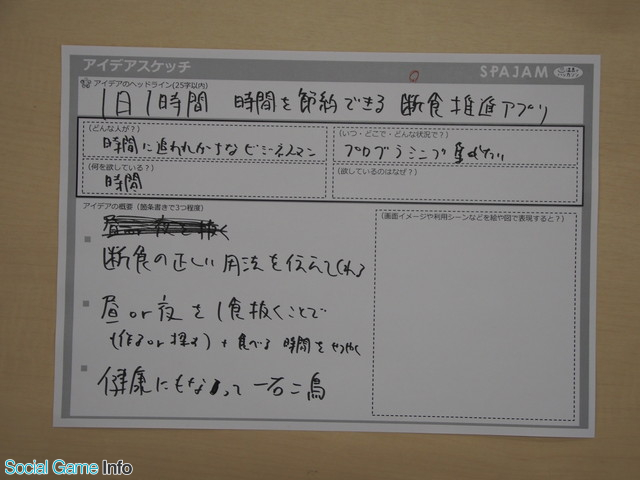 アイデアスケッチ
SPAJAM
アイデアのヘッドライン(25字以内)
1日1時間 時間を節約できる 断食推進アプリ
(どんな人が?)
時間に追われがちなビジネスマン
(いつ・どこで・どんな状況で?)
プログラミング
(何を欲している?)
時間
(欲しているのはなぜ?)
アイデアの概要(箇条書きで3つ程度)
(画面イメージや利用シーンなどを絵や図で表現すると?)
断食の正しい用法を伝えてくれる
昼or夜を1食抜くことで
(作るor探す)+食べる 時間をせつやく
健康にもなって一石二鳥
Social Game Info